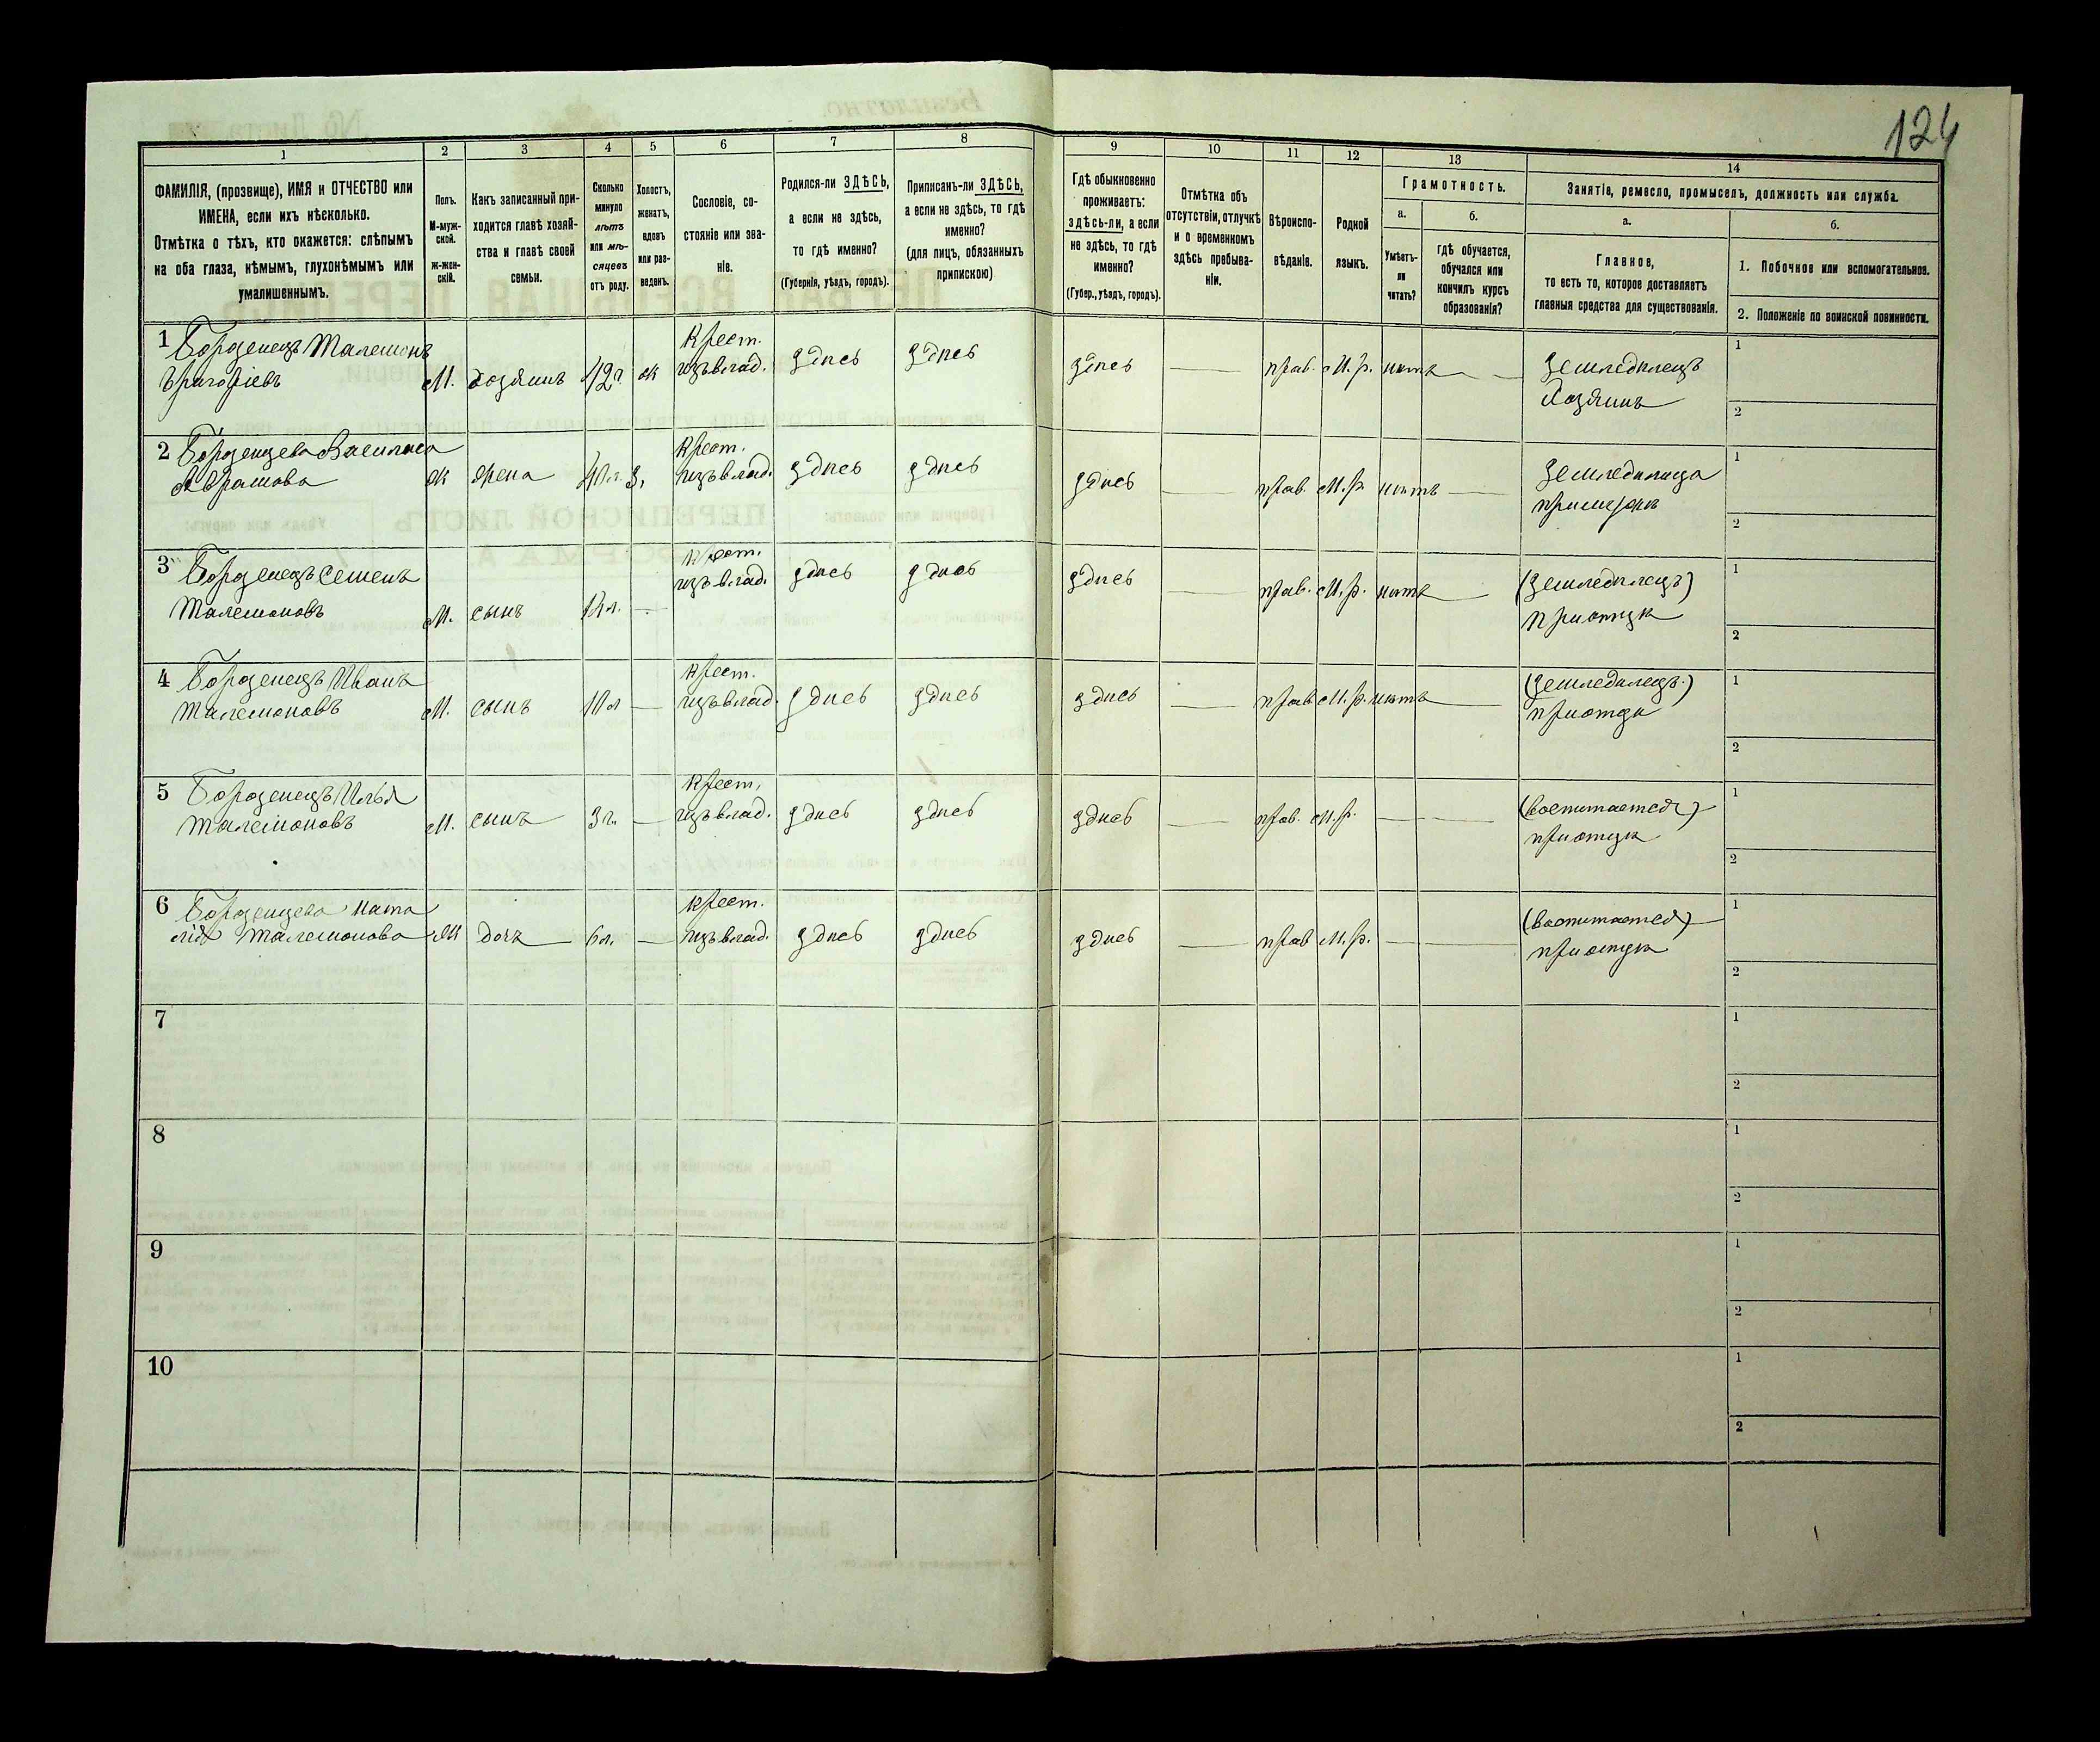 124
1 2 3 4 5 6 7 8 9 10 11 12 13 14
ФАМИЛІЯ, (прозвище), ИМЯ и ОТЧЕСТВО или
ИМЕНА, если ихъ нѣсколько.
Отмѣтка о тѣхъ, кто окажется: слѣпымъ
на оба глаза, нѣмымъ, глухонѣмымъ или
умалишеннымъ.
Полъ.
М-муж-
ской.
ж-жен-
скій.
Какъ записанный при-
ходится главѣ хозяй-
ства и главѣ своей
семьи.
Сколько
минуло
лѣтъ
или мѣ-
сяцевъ
отъ роду.
Холостъ,
женатъ,
вдовъ
или раз-
веденъ.
Сословіе, со-
стояніе или зва-
ніе.
Родился-ли ЗДѢСЬ,
а если не здѣсь,
то гдѣ именно?
(Губернія, уѣздъ, городъ).
Приписанъ-ли ЗДѢСЬ,
а если не здѣсь, то гдѣ
именно?
(для лицъ, обязанныхъ
припискою)
Гдѣ обыкновенно
проживаетъ:
здѣсь-ли, а если
не здѣсь, то гдѣ
именно?
(Губер., уѣздъ, городъ).
Отмѣтка объ
отсутствіи, отлучкѣ
и о временномъ
здѣсь пребыва-
ніи.
Вѣроиспо-
вѣданіе.
Родной
языкъ.
Грамотность.
а.
Умѣетъ-
ли
читать?
б.
Гдѣ обучается,
обучался или
кончилъ курсъ
образованія?
Занятіе, ремесло, промыселъ, должность или служба.
а.
Главное,
то есть то, которое доставляетъ
главныя средства для существованія.
б.
1. Побочное или вспомогательное.
2. Положеніе по воинской повинности.
1 Борзенецъ Талемонъ
Григоріевъ М. хозяинъ 42 г. ж Крест. изъ влад. здѣсь здѣсь здѣсь прав. М. р. нѣтъ Земледѣлецъ
Хозяинъ
1
2
2 Борзенцева Василиса
Абрамова ж жена 40 л. з. Крест. изъ влад. здѣсь здѣсь здѣсь прав. М. р. нѣтъ Земледѣлица
при мужѣ
1
2
3 Борзенецъ Семенъ
Талемоновъ М. сынъ л. Крест. изъ влад. здѣсь здѣсь здѣсь прав. М. р. нѣтъ (земледѣлецъ)
при отцѣ
1
2
4 Борзенецъ Иванъ
Талемоновъ М. сынъ 10 л Крест. изъ влад. здѣсь здѣсь здѣсь прав. М. р. нѣтъ (земледѣлецъ.)
при отцѣ
1
2
5 Борзенецъ Илья
Талемоновъ М. сынъ 3 г. Крест. изъ влад. здѣсь здѣсь здѣсь прав. М. р. (воспитается)
при отцѣ
1
2
6 Борзенцева Ната
лія Талемонова Ж дочь 6 л. Крест. изъ влад. здѣсь здѣсь здѣсь прав М. р. (воспитается)
при отцѣ
1
2
7
1
2
8
1
2
9
1
2
10
1
2